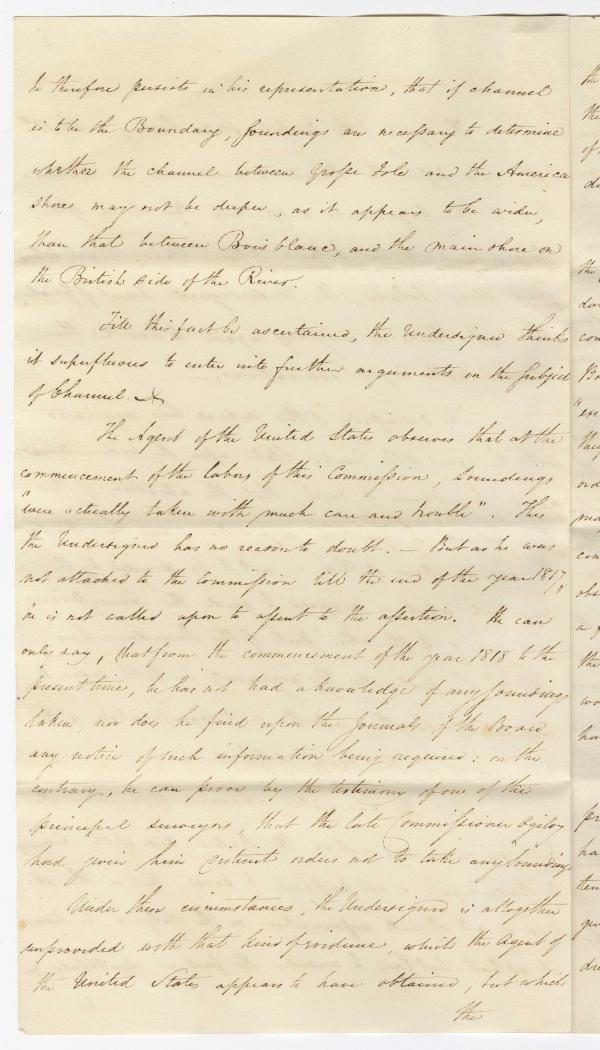 he therefore persists in his representation, that if channel
is to be the Boundary, soundings are necessary to determine
whether the channel between Grosse Isle and the America
shore may not be deeper, as it appears to be wider,
than that between Bois blanc, and the main shore on
the British side of the River.
Till this fact be ascertained, the Undersigned thinks
it superfluous to enter into further arguments on the subject
of Channel.
The Agent of the United States observes that at the
commencement of the labors of this Commission, soundings
"were actually taken with much care and trouble". This
the Undersigned has no reason to doubt. — But as he was
not attached to the Commission till the end of the year 1817,
he is not called upon to assent to the assertion. He can
only say, that from the commencement of the year 1818 to the
present time, he has not had a knowledge of any soundings
taken, nor does he find upon the Journals of the Board
any notice of such information being required: on the
contrary, he can prove by the testimony of one of the
principal surveyors, that the late Commissioner Ogilvy
had given him distinct orders not to take any soundings
Under these circumstances, the Undersigned is altogether
unprovided with that kind of evidence, which the Agent of
the United States appears to have obtained, but which
the